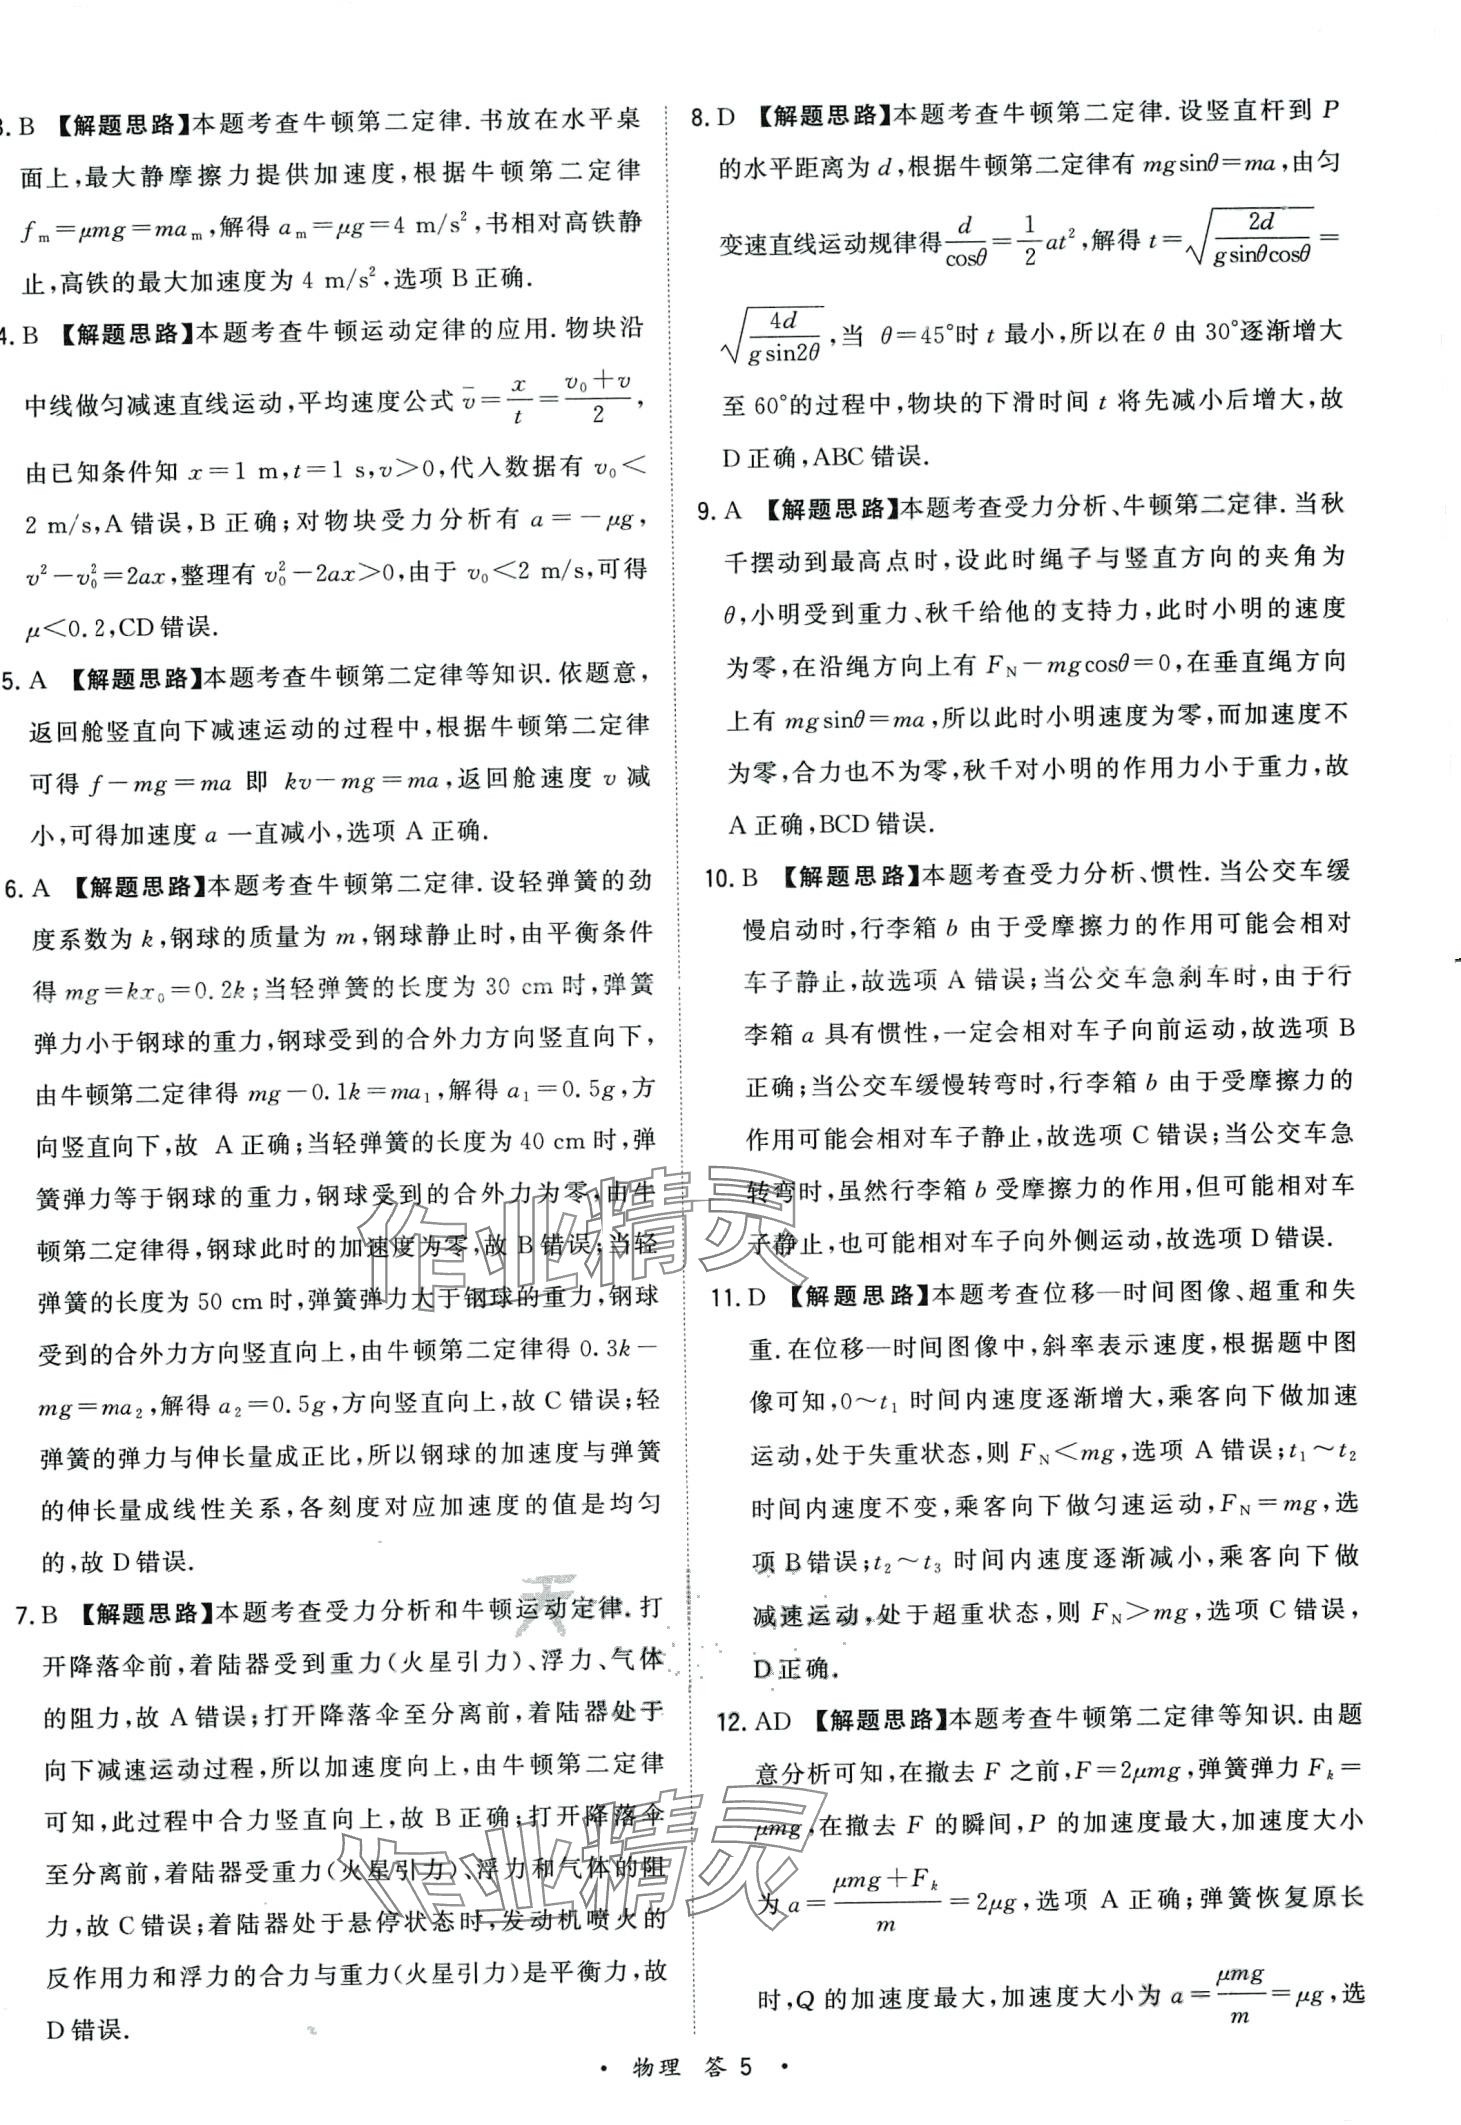 3. B 【解题思路】本题考查牛顿第二定律.书放在水平桌
面上,最大静摩擦力提供加速度,根据牛顿第二定律
fₘ=μmg=maₘ,解得 aₘ=μg=4 m/s²,书相对高铁静
止,高铁的最大加速度为 4 m/s².选项 B 正确.
4. B 【解题思路】本题考查牛顿运动定律的应用.物块沿
中线做匀减速直线运动,平均速度公式 v̄=x/t=(v₀+v)/2,
由已知条件知 x=1 m,t=1 s,v>0,代入数据有 v₀<
2 m/s,A 错误,B 正确;对物块受力分析有 a=-μg,
v²-v₀²=2ax,整理有 v₀²-2ax>0,由于 v₀<2 m/s,可得
μ<0.2,CD 错误.
5. A 【解题思路】本题考查牛顿第二定律等知识.依题意,
返回舱竖直向下减速运动的过程中,根据牛顿第二定律
可得 f-mg=ma 即 kv-mg=ma,返回舱速度 v 减
小,可得加速度 a 一直减小,选项 A 正确.
6. A 【解题思路】本题考查牛顿第二定律.设轻弹簧的劲
度系数为 k,钢球的质量为 m,钢球静止时,由平衡条件
得 mg=kx₀=0.2k;当轻弹簧的长度为 30 cm 时,弹簧
弹力小于钢球的重力,钢球受到的合外力竖直向下,
由牛顿第二定律得 mg-0.1k=ma₁,解得 a₁=0.5g,方
向竖直向下,故 A 正确;当轻弹簧的长度为 40 cm 时,弹
簧弹力等于钢球的重力,钢球受到的合外力为零,由牛
顿第二定律得,钢球此时的加速度为零,故 B 错误;当轻
弹簧的长度为 50 cm 时,弹簧弹力大于钢球的重力,钢球
受到的合外力方向竖直向上,由牛顿第二定律得 0.3k-
mg=ma₂,解得 a₂=0.5g,方向竖直向上,故 C 错误;轻
弹簧的弹力与伸长量成正比,所以钢球的加速度与弹簧
的伸长量成线性关系,各刻度对应加速度的值是均匀
的,故 D 错误.
7. B 【解题思路】本题考查受力分析和牛顿运动定律.打
开降落伞前,着陆器受到重力(火星引力)、浮力、气体
的阻力,故 A 错误;打开降落伞至分离前,着陆器处于
向下减速运动过程,所以加速度向上,由牛顿第二定律
可知,此过程中合力竖直向上,故 B 正确;打开降落伞
至分离前,着陆器受重力(火星引力)、浮力和气体的阻
力,故 C 错误;着陆器处于悬停状态时,发动机喷火的
反作用力和浮力的合力与重力(火星引力)是平衡力,故
D 错误.
8. D 【解题思路】本题考查牛顿第二定律.设竖直杆到 P
的水平距离为 d,根据牛顿第二定律有 mgsinθ=ma,由匀
变速直线运动规律得 d/cosθ=1/2 at²,解得 t=√(2d/(gsinθcosθ))=
√(4d/(gsin2θ)),当 θ=45°时 t 最小,所以在 θ 由 30°逐渐增大
至 60°的过程中,物块的下滑时间 t 将先减小后增大,故
D 正确,ABC 错误.
9. A 【解题思路】本题考查受力分析、牛顿第二定律.当秋
千摆动到最高点时,设此时绳子与竖直方向的夹角为
θ,小明受到重力、秋千给他的支持力,此时小明的速度
为零,在沿绳方向上有 F_N-mgcosθ=0,在垂直绳方向
上有 mgsinθ=ma,所以此时小明速度为零,而加速度不
为零,合力也不为零,秋千对小明的作用力小于重力,故
A 正确,BCD 错误.
10. B 【解题思路】本题考查受力分析、惯性.当公交车缓
慢启动时,行李箱 b 由于受摩擦力的作用可能会相对
车子静止,故选项 A 错误;当公交车急刹车时,由于行
李箱 a 具有惯性,一定会相对车子向前运动,故选项 B
正确;当公交车缓慢转弯时,行李箱 b 由于受摩擦力的
作用可能会相对车子静止,故选项 C 错误;当公交车急
转弯时,虽然行李箱 b 受摩擦力的作用,但可能相对车
子静止,也可能相对车子向外侧运动,故选项 D 错误.
11. D 【解题思路】本题考查位移—时间图像、超重和失
重.在位移—时间图像中,斜率表示速度,根据题中图
像可知,0~t₁ 时间内速度逐渐增大,乘客向下做加速
运动,处于失重状态,则 F_N<mg,选项 A 错误;t₁~t₂
时间内速度不变,乘客向下做匀速运动,F_N=mg,选
项 B 错误;t₂~t₃ 时间内速度逐渐减小,乘客向下做
减速运动,处于超重状态,则 F_N>mg,选项 C 错误,
D 正确.
12. AD 【解题思路】本题考查牛顿第二定律等知识.由题
意分析可知,在撤去 F 之前,F=2μmg,弹簧弹力 Fₖ=
μmg,在撤去 F 的瞬间,P 的加速度最大,加速度大小
为 a=(μmg+Fₖ)/m=2μg,选项 A 正确;弹簧恢复原长
时,Q 的加速度最大,加速度大小为 a=μmg/m=μg,选
作业精灵
作业精灵
• 物理 答 5 •